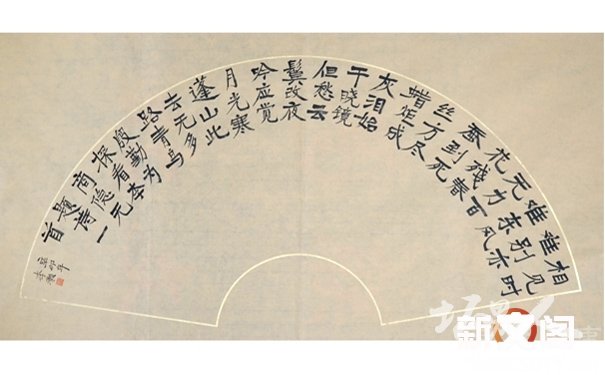 相见时
难别亦
难东风
无力百
花残春
蚕到死
丝方尽
蜡炬成
灰泪始
干晓镜
但愁云
鬓改夜
吟应觉
月光寒
蓬山此
去无多
路青鸟
殷勤为
探看李
商隐无
题诗一
首
辛卯年
新文阁